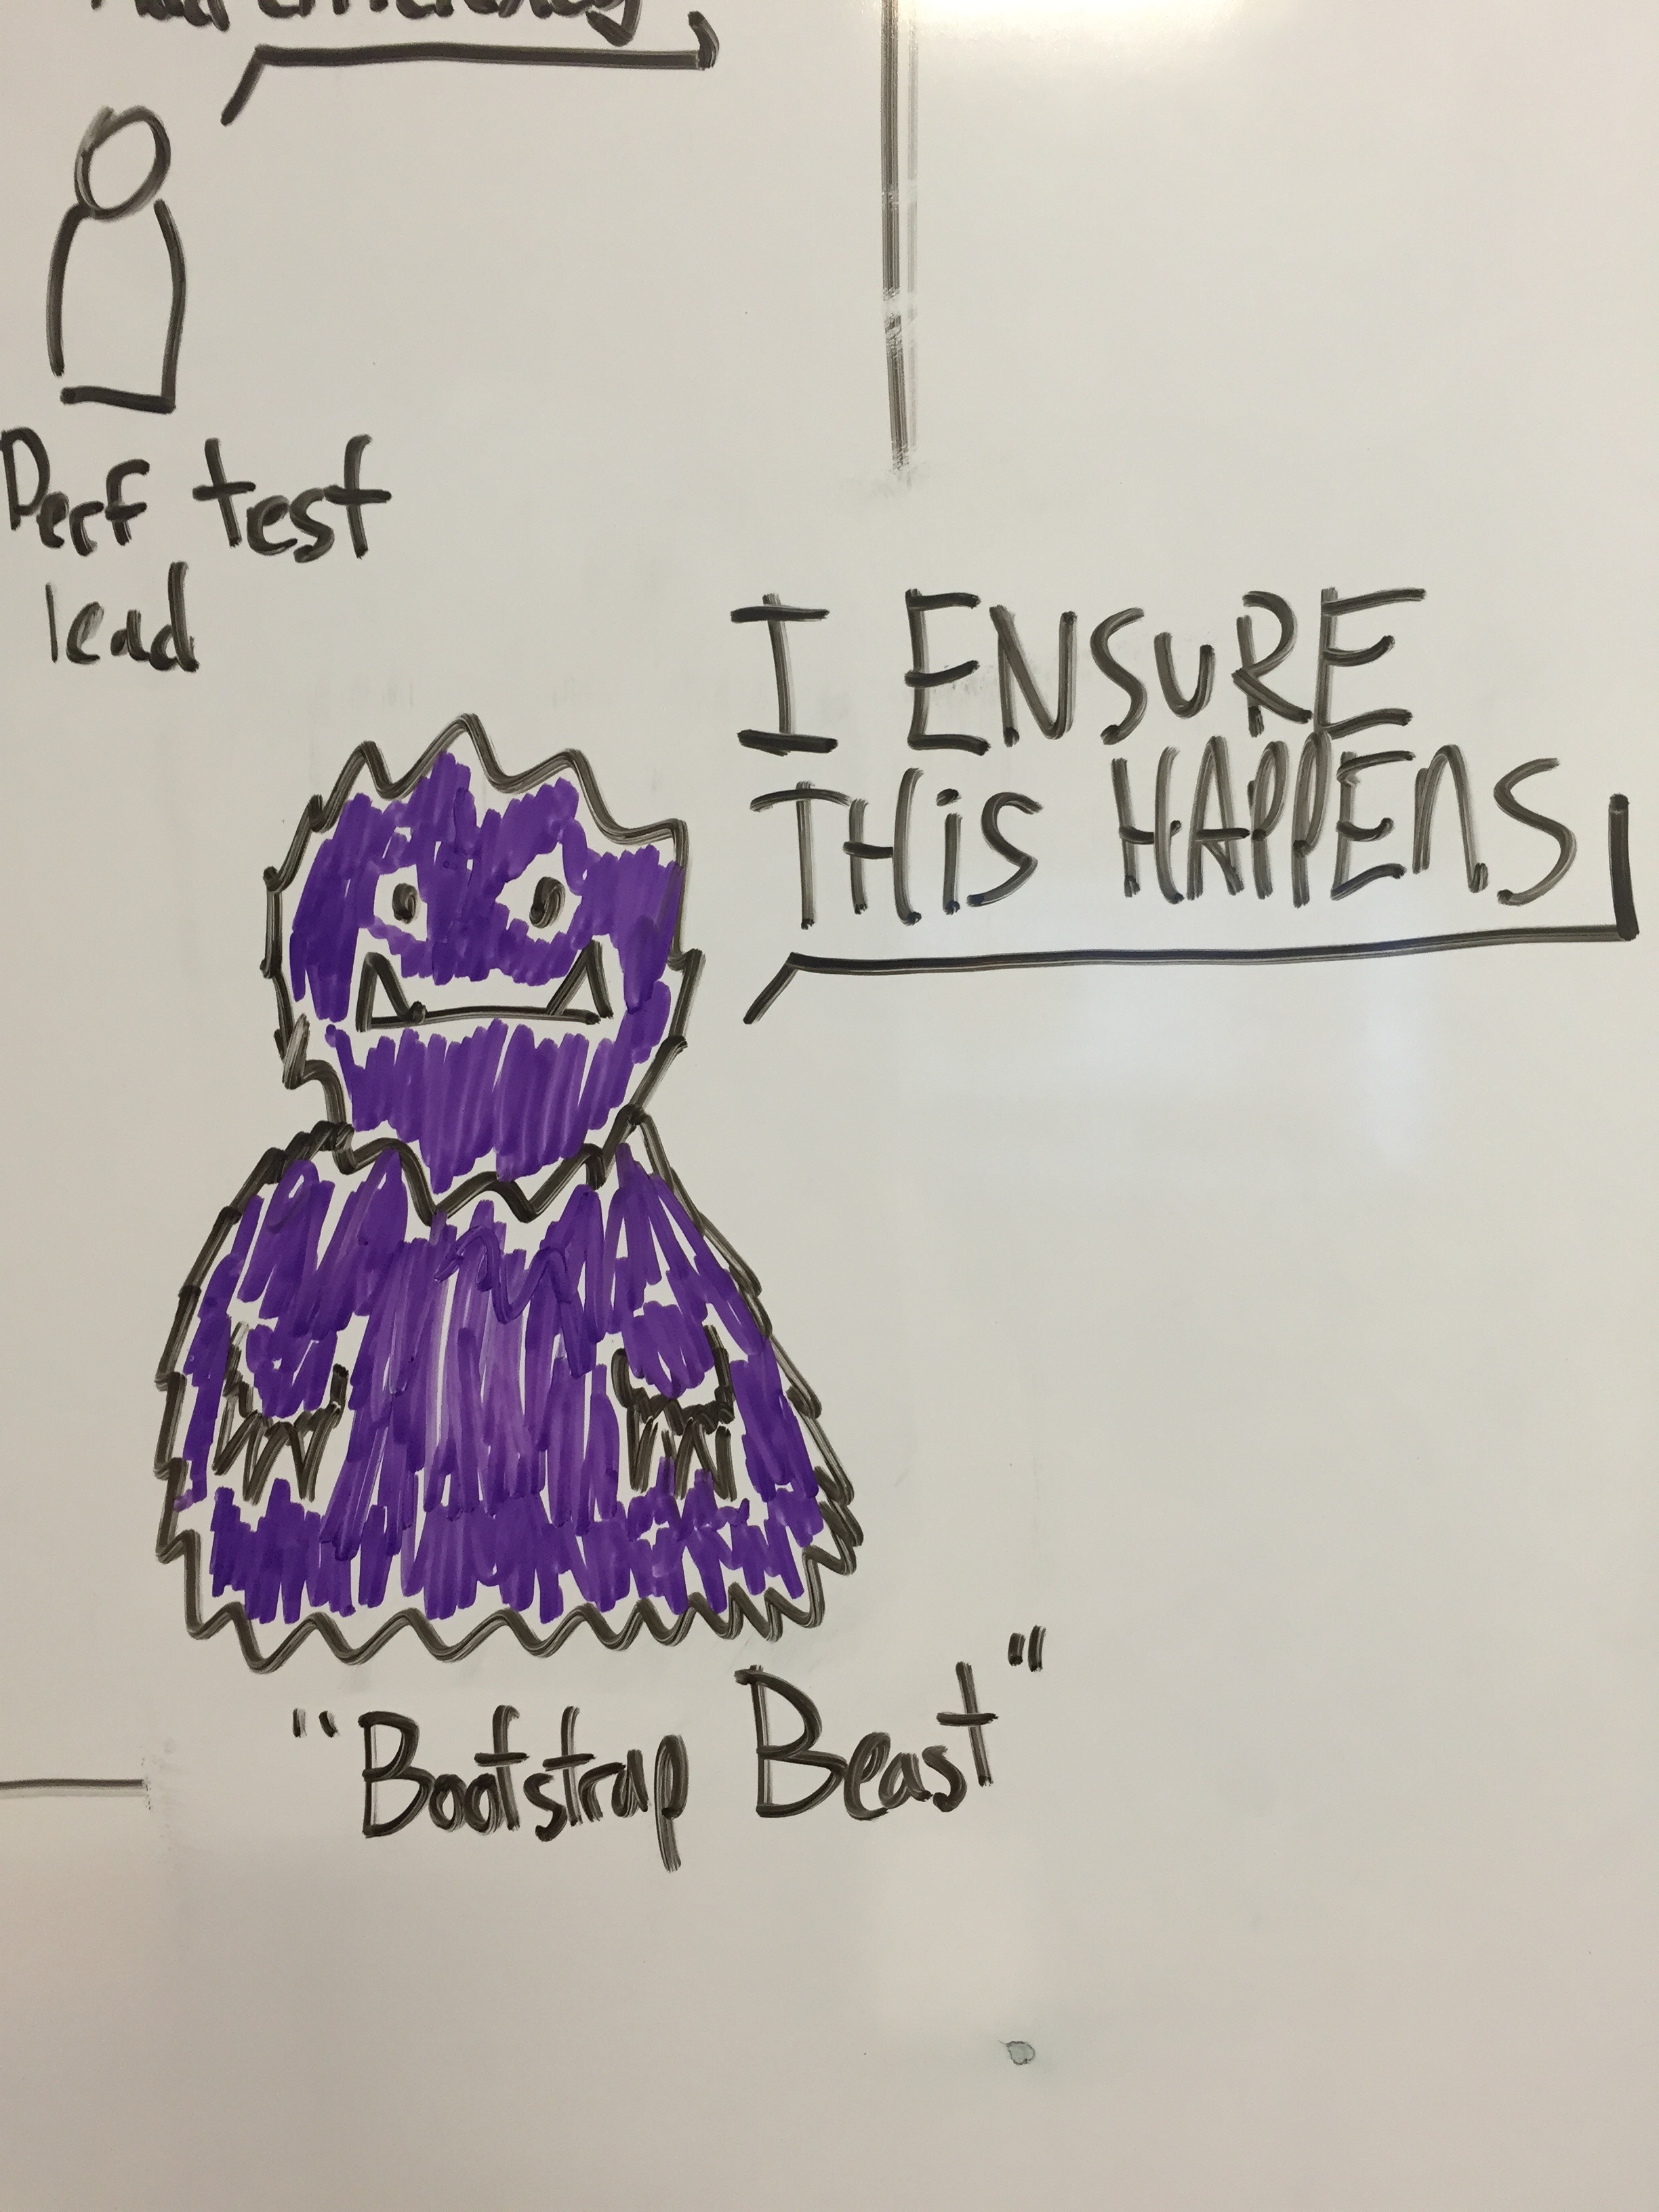 efficiency
Perf test
lead
I ENSURE
THiS HAPPENS
"Bootstrap Beast"